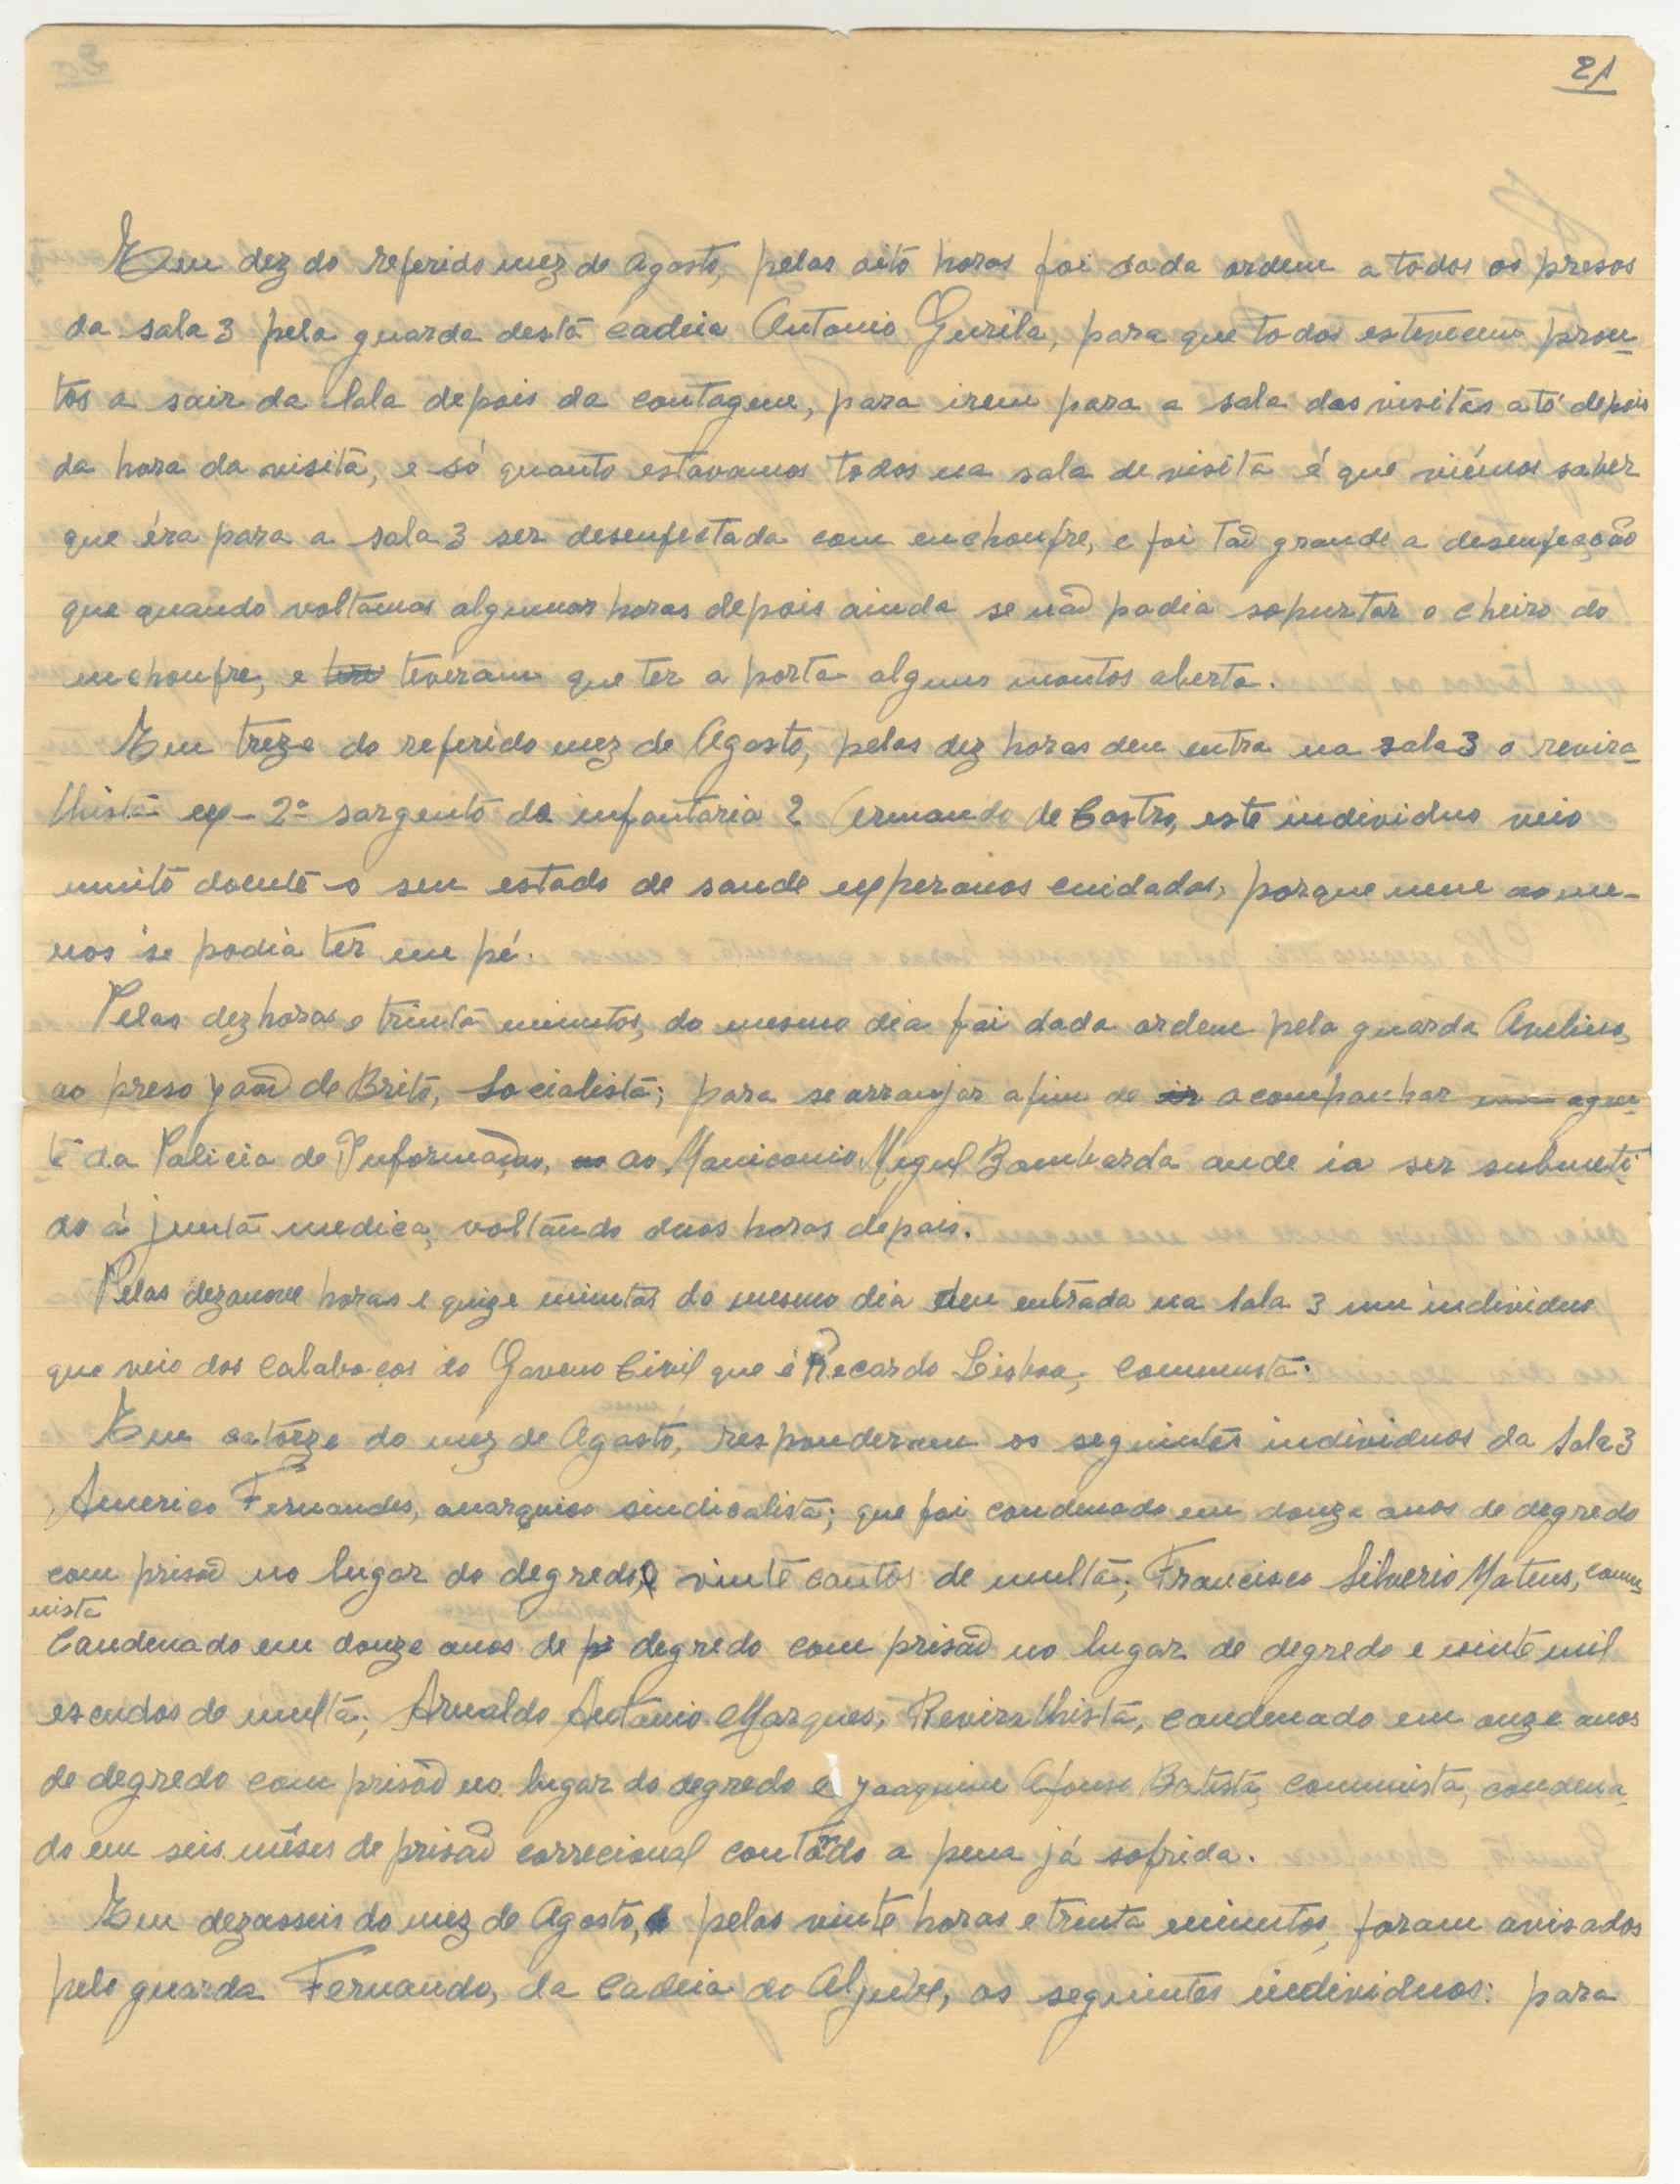 21
Em dez do referido mez de Agosto, pelas oito horas foi dada ordem a todos os presos
da sala 3 pelo guarda destà cadeia Antonio Gurila, para que todos estevecem pron-
tos a sair da sala depois da contagem, para irem para a sala das visitas até depois
da hora da visità, e só quanto estavamos todos na sala de visità é que viémos saber
que éra para a sala 3 ser desenfectada com enchoufre, e foi taõ grande a desenfecação
que quando voltamos algumas horas depois ainda se naõ podia sopurtar o cheiro do
enchoufre, e teveram que ter a porta alguns montos aberta.
Em treze do referido mez de Agosto, pelas dez horas deu entra na sala 3 o revira-
lhistà ex-2º sargento de infantaria 2 Armando de Castro, este individuo veio
muito doente o seu estado de saude expiravos cuidados, porque nem ao me-
nos se podia ter em pé.
Pelas dez horas e trinta minutos, do mesmo dia foi dada ordem pelo guarda Avelino,
ao preso joaõ de Brito, Socialistà; para se arranjar afim de ir acompanhar um agen-
te da Policia de Informação, ao Manicomio Miguel Bombarda onde ia ser submeti-
do á junta medica, voltando duas horas depois.
Pelas dezanove horas e quize minutos do mesmo dia deu entrada na sala 3 um individuo
que veio dos calabocos do Governo Civil que é Recardo Lisboa, communista.
Em catorze do mez de Agosto, responderam os seguintes individuos da Sala 3
Americo Fernandes, anarquico sindicalistà; que foi condenado em douze anos de degredo
com prisaõ no lugar do degredo, e vinte contos de multa; Francisco Silverio Mateus, comu-
nista
Condenado em douze anos de degredo com prisaõ no lugar de degredo e vinte mil
escudos de multà; Arnaldo António Marques, Reviralhistà, condenado em onze anos
de degredo com prisaõ no lugar do degredo e joaquim Afonso Batista, communista, condena-
do em seis mêses de prisaõ correcional contando a pena já sofrida.
Em dezasseis do mez de Agosto, pelas vinte horas e trinta minutos, foram avisados
pelo guarda Fernando, da Cadeia do Aljube, os seguintes individuos: para